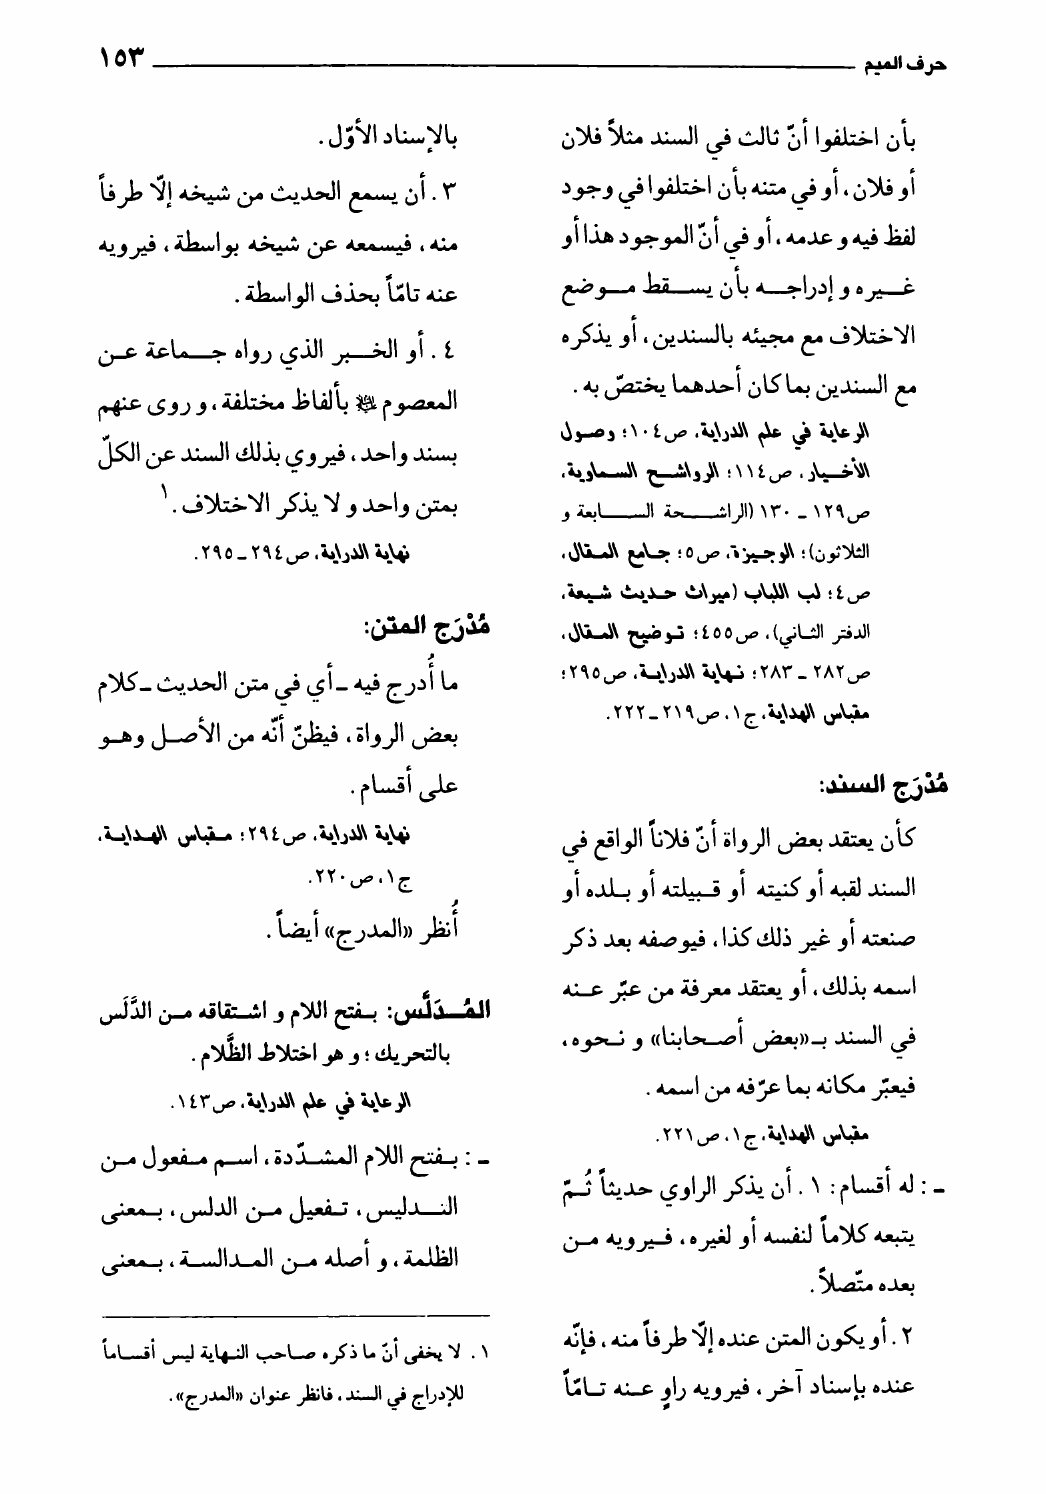 حرف الميم ١٥٣
بأن اختلفوا أنّ ثالث في السند مثلاً فلان
أو فلان، أو في متنه بأن اختلفوا في وجود
لفظ فيه و عدمه، أو في أنّ الموجود هذا أو
غيره و إدراجه بأن يسقط موضع
الاختلاف مع مجيئه بالسندين، أو يذكره
مع السندين بما كان أحدهما يختصّ به.
الرعاية في علم الدراية، ص١٠٤؛ وصول
الأخيار، ص١١٤؛ الرواشح السماوية،
ص١٢٩ ـ ١٣٠ (الراشحة السابعة و
الثلاثون)؛ الوجيزة، ص٥؛ جامع المقال،
ص٤؛ لب اللباب (ميراث حديث شيعة،
الدفتر الثاني)، ص٤٥٥؛ توضيح المقال،
ص٢٨٢ ـ ٢٨٣؛ نهاية الدراية، ص٢٩٥؛
مقباس الهداية، ج١، ص٢١٩ـ٢٢٢.
مُدْرَج السند:
كأن يعتقد بعض الرواة أنّ فلاناً الواقع في
السند لقبه أو كنيته أو قبيلته أو بلده أو
صنعته أو غير ذلك كذا، فيوصفه بعد ذكر
اسمه بذلك، أو يعتقد معرفة من عبّر عنه
في السند بـ«بعض أصحابنا» و نحوه،
فيعبّر مكانه بما عرّفه من اسمه.
مقباس الهداية، ج١، ص٢٢١.
ـ : له أقسام: ١. أن يذكر الراوي حديثاً ثُمّ
يتبعه كلاماً لنفسه أو لغيره، فيرويه من
بعده متّصلاً.
٢. أو يكون المتن عنده إلّا طرفاً منه، فإنّه
عنده بإسناد آخر، فيرويه راوٍ عنه تامّاً
بالإسناد الأوّل.
٣. أن يسمع الحديث من شيخه إلّا طرفاً
منه، فيسمعه عن شيخه بواسطة، فيرويه
عنه تامّاً بحذف الواسطة.
٤. أو الخبر الذي رواه جماعة عن
المعصوم بألفاظ مختلفة، و روى عنهم
بسند واحد، فيروي بذلك السند عن الكلّ
بمتن واحد و لا يذكر الاختلاف.١
نهاية الدراية، ص٢٩٤ـ٢٩٥.
مُدْرَج المتن:
ما أُدرج فيه ـ أي في متن الحديث ـ كلام
بعض الرواة، فيظنّ أنّه من الأصل وهو
على أقسام.
نهاية الدراية، ص٢٩٤؛ مقباس الهداية،
ج١، ص٢٢٠.
أُنظر «المدرج» أيضاً.
المُدَلَّس: بفتح اللام و اشتقاقه من الدَّلَس
بالتحريك؛ و هو اختلاط الظَّلام.
الرعاية في علم الدراية، ص١٤٣.
ـ : بفتح اللام المشدّدة، اسم مفعول من
التدليس، تفعيل من الدلس، بمعنى
الظلمة، و أصله من المدالسة، بمعنى
١. لا يخفى أنّ ما ذكره صاحب النهاية ليس أقساماً
للإدراج في السند، فانظر عنوان «المدرج».